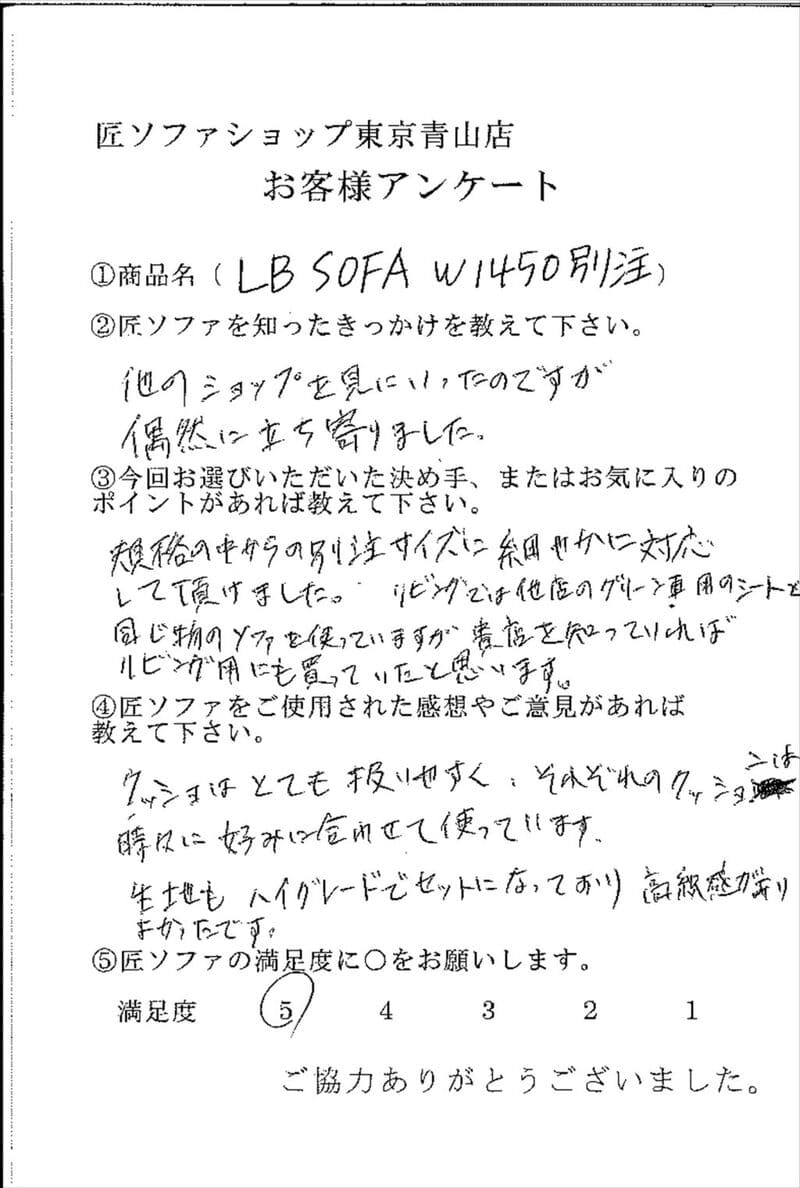 匠ソファショップ東京青山店
お客様アンケート
①商品名（LB SOFA W1450別注）
②匠ソファを知ったきっかけを教えて下さい。
他のショップを見にいったのですが
偶然に立ち寄りました。
③今回お選びいただいた決め手、またはお気に入りの
ポイントがあれば教えて下さい。
規格の中からの別注サイズに細やかに対応
して頂けました。 リビングでは他店のグリーン車用のシートと
同じ物のソファを使っていますが貴店を知っていれば
リビング用にも買っていたと思います。
④匠ソファをご使用された感想やご意見があれば
教えて下さい。
クッショはとても扱いやすく、それぞれのクッションは
時々に好みに合わせて使っています。
生地もハイグレードでセットになっており高級感があり
よかったです。
⑤匠ソファの満足度に○をお願いします。
満足度 5 4 3 2 1
ご協力ありがとうございました。